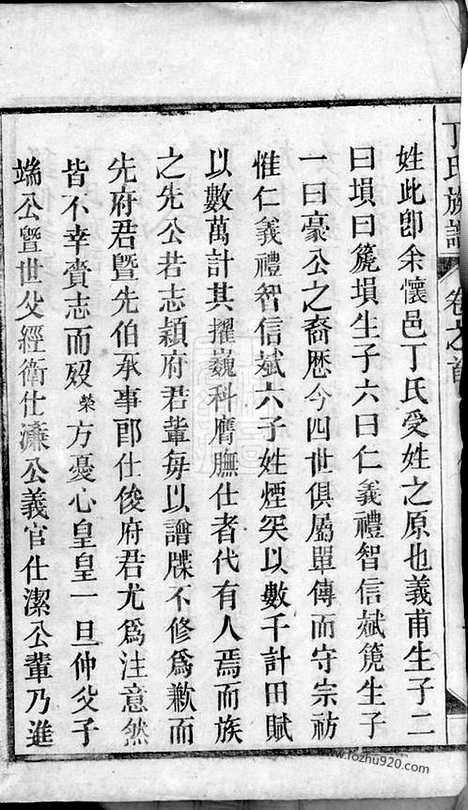 丁氏族譜 卷之首
姓此卽余懷邑丁氏受姓之原也義甫生子二
曰塤曰篪塤生子六曰仁義禮智信斌篪生子
一曰豪公之裔歷今四世俱屬單傳而守宗祊
惟仁義禮智信斌六子姓煙矣以數千計田賦
以數萬計其擢巍科膺膴仕者代有人焉而族
之先公若志穎府君輩每以譜牒不修爲歉而
先府君暨先伯承事郎仕俊府君尤爲注意然
皆不幸賫志而歿榮方憂心皇皇一旦仲父子
端公暨世父經衛仕濂公義官仕潔公輩乃進
www.fozhu920.com